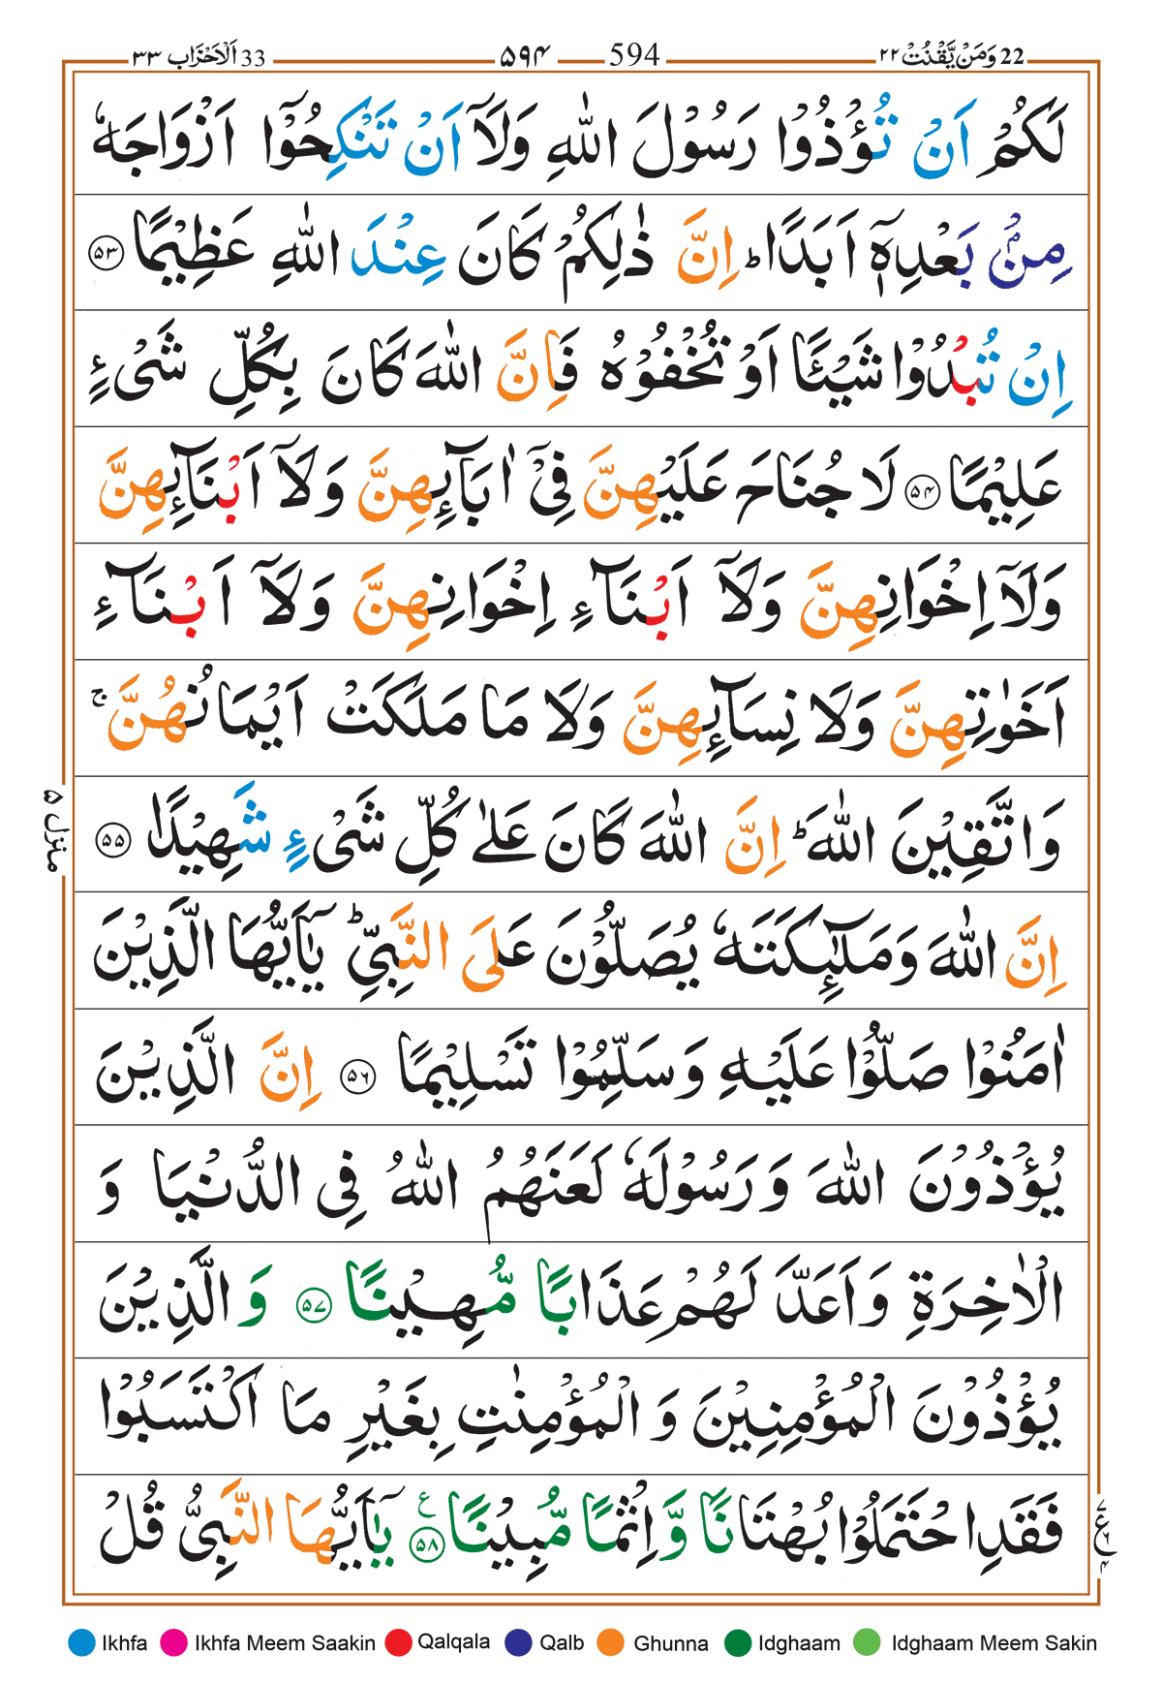 22 وَمَنْ يَّقْنُتْ ٢٢ 594 ۵۹۴ 33 اَلْاَحْزَاب ٣٣
لَكُمْ اَنْ تُؤْذُوْا رَسُوْلَ اللّٰهِ وَلَاۤ اَنْ تَنْكِحُوْۤا اَزْوَاجَهٗ
مِنْۢ بَعْدِهٖۤ اَبَدًا ؕ اِنَّ ذٰلِكُمْ كَانَ عِنْدَ اللّٰهِ عَظِيْمًا ﴿۵۳﴾
اِنْ تُبْدُوْا شَيْـًٔا اَوْ تُخْفُوْهُ فَاِنَّ اللّٰهَ كَانَ بِكُلِّ شَیْءٍ
عَلِيْمًا ﴿۵۴﴾ لَا جُنَاحَ عَلَيْهِنَّ فِیْۤ اٰبَآىِٕهِنَّ وَلَاۤ اَبْنَآىِٕهِنَّ
وَلَاۤ اِخْوَانِهِنَّ وَلَاۤ اَبْنَآءِ اِخْوَانِهِنَّ وَلَاۤ اَبْنَآءِ
اَخَوٰتِهِنَّ وَلَا نِسَآىِٕهِنَّ وَلَا مَا مَلَكَتْ اَيْمَانُهُنَّ ۚ
وَاتَّقِيْنَ اللّٰهَ ؕ اِنَّ اللّٰهَ كَانَ عَلٰى كُلِّ شَیْءٍ شَهِيْدًا ﴿۵۵﴾
اِنَّ اللّٰهَ وَمَلٰٓىِٕكَتَهٗ يُصَلُّوْنَ عَلَى النَّبِیِّ ؕ يٰۤاَيُّهَا الَّذِيْنَ
اٰمَنُوْا صَلُّوْا عَلَيْهِ وَسَلِّمُوْا تَسْلِيْمًا ﴿۵۶﴾ اِنَّ الَّذِيْنَ
يُؤْذُوْنَ اللّٰهَ وَرَسُوْلَهٗ لَعَنَهُمُ اللّٰهُ فِی الدُّنْيَا وَ
الْاٰخِرَةِ وَاَعَدَّ لَهُمْ عَذَابًا مُّهِيْنًا ﴿۵۷﴾ وَالَّذِيْنَ
يُؤْذُوْنَ الْمُؤْمِنِيْنَ وَ الْمُؤْمِنٰتِ بِغَيْرِ مَا اكْتَسَبُوْا
فَقَدِ احْتَمَلُوْا بُهْتَانًا وَّاِثْمًا مُّبِيْنًا ﴿۵۸﴾ ع يٰۤاَيُّهَا النَّبِیُّ قُلْ
منزل ۵
Ikhfa Ikhfa Meem Saakin Qalqala Qalb Ghunna Idghaam Idghaam Meem Sakin